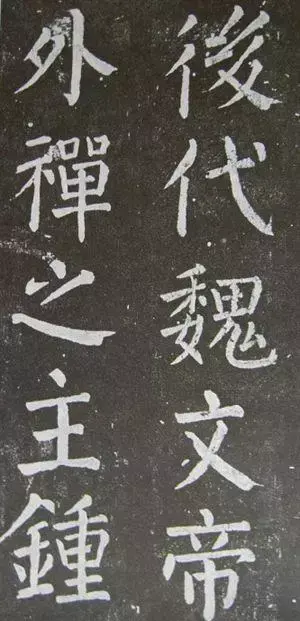 後代魏文帝
外禪之主鍾